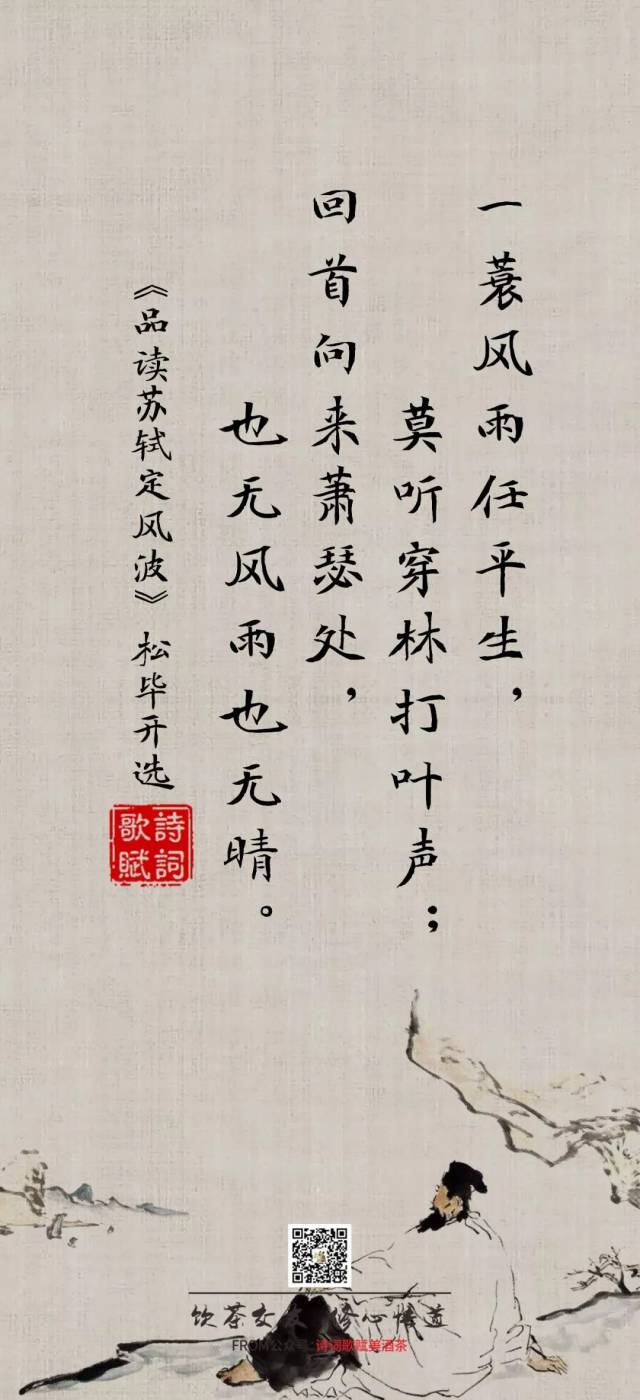 一蓑风雨任平生，
莫听穿林打叶声；
回首向来萧瑟处，
也无风雨也无晴。
《品读苏轼定风波》松毕开选
詩詞
歌賦
饮茶交友 修心悟道
FROM公众号:诗词歌赋美酒茶